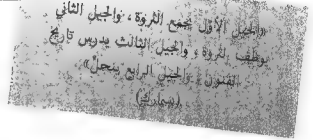 «الجيل الأوّل يجمع الثروة ، والجيل الثاني
يوظف الثروة ، والجيل الثالث يدرس تاريخ
الفنون ، والجيل الرابع ينحلّ»
(بسمارك)